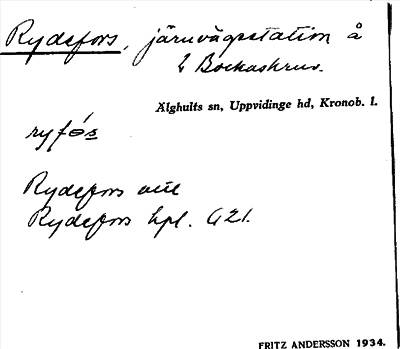 Rydefors, järnvägsstation å
L Bockaskruv.
Älghults sn, Uppvidinge hd, Kronob. l.
ryfós
Rydefors
Rydefors hpl. G 21.
FRITZ ANDERSSON 1934.